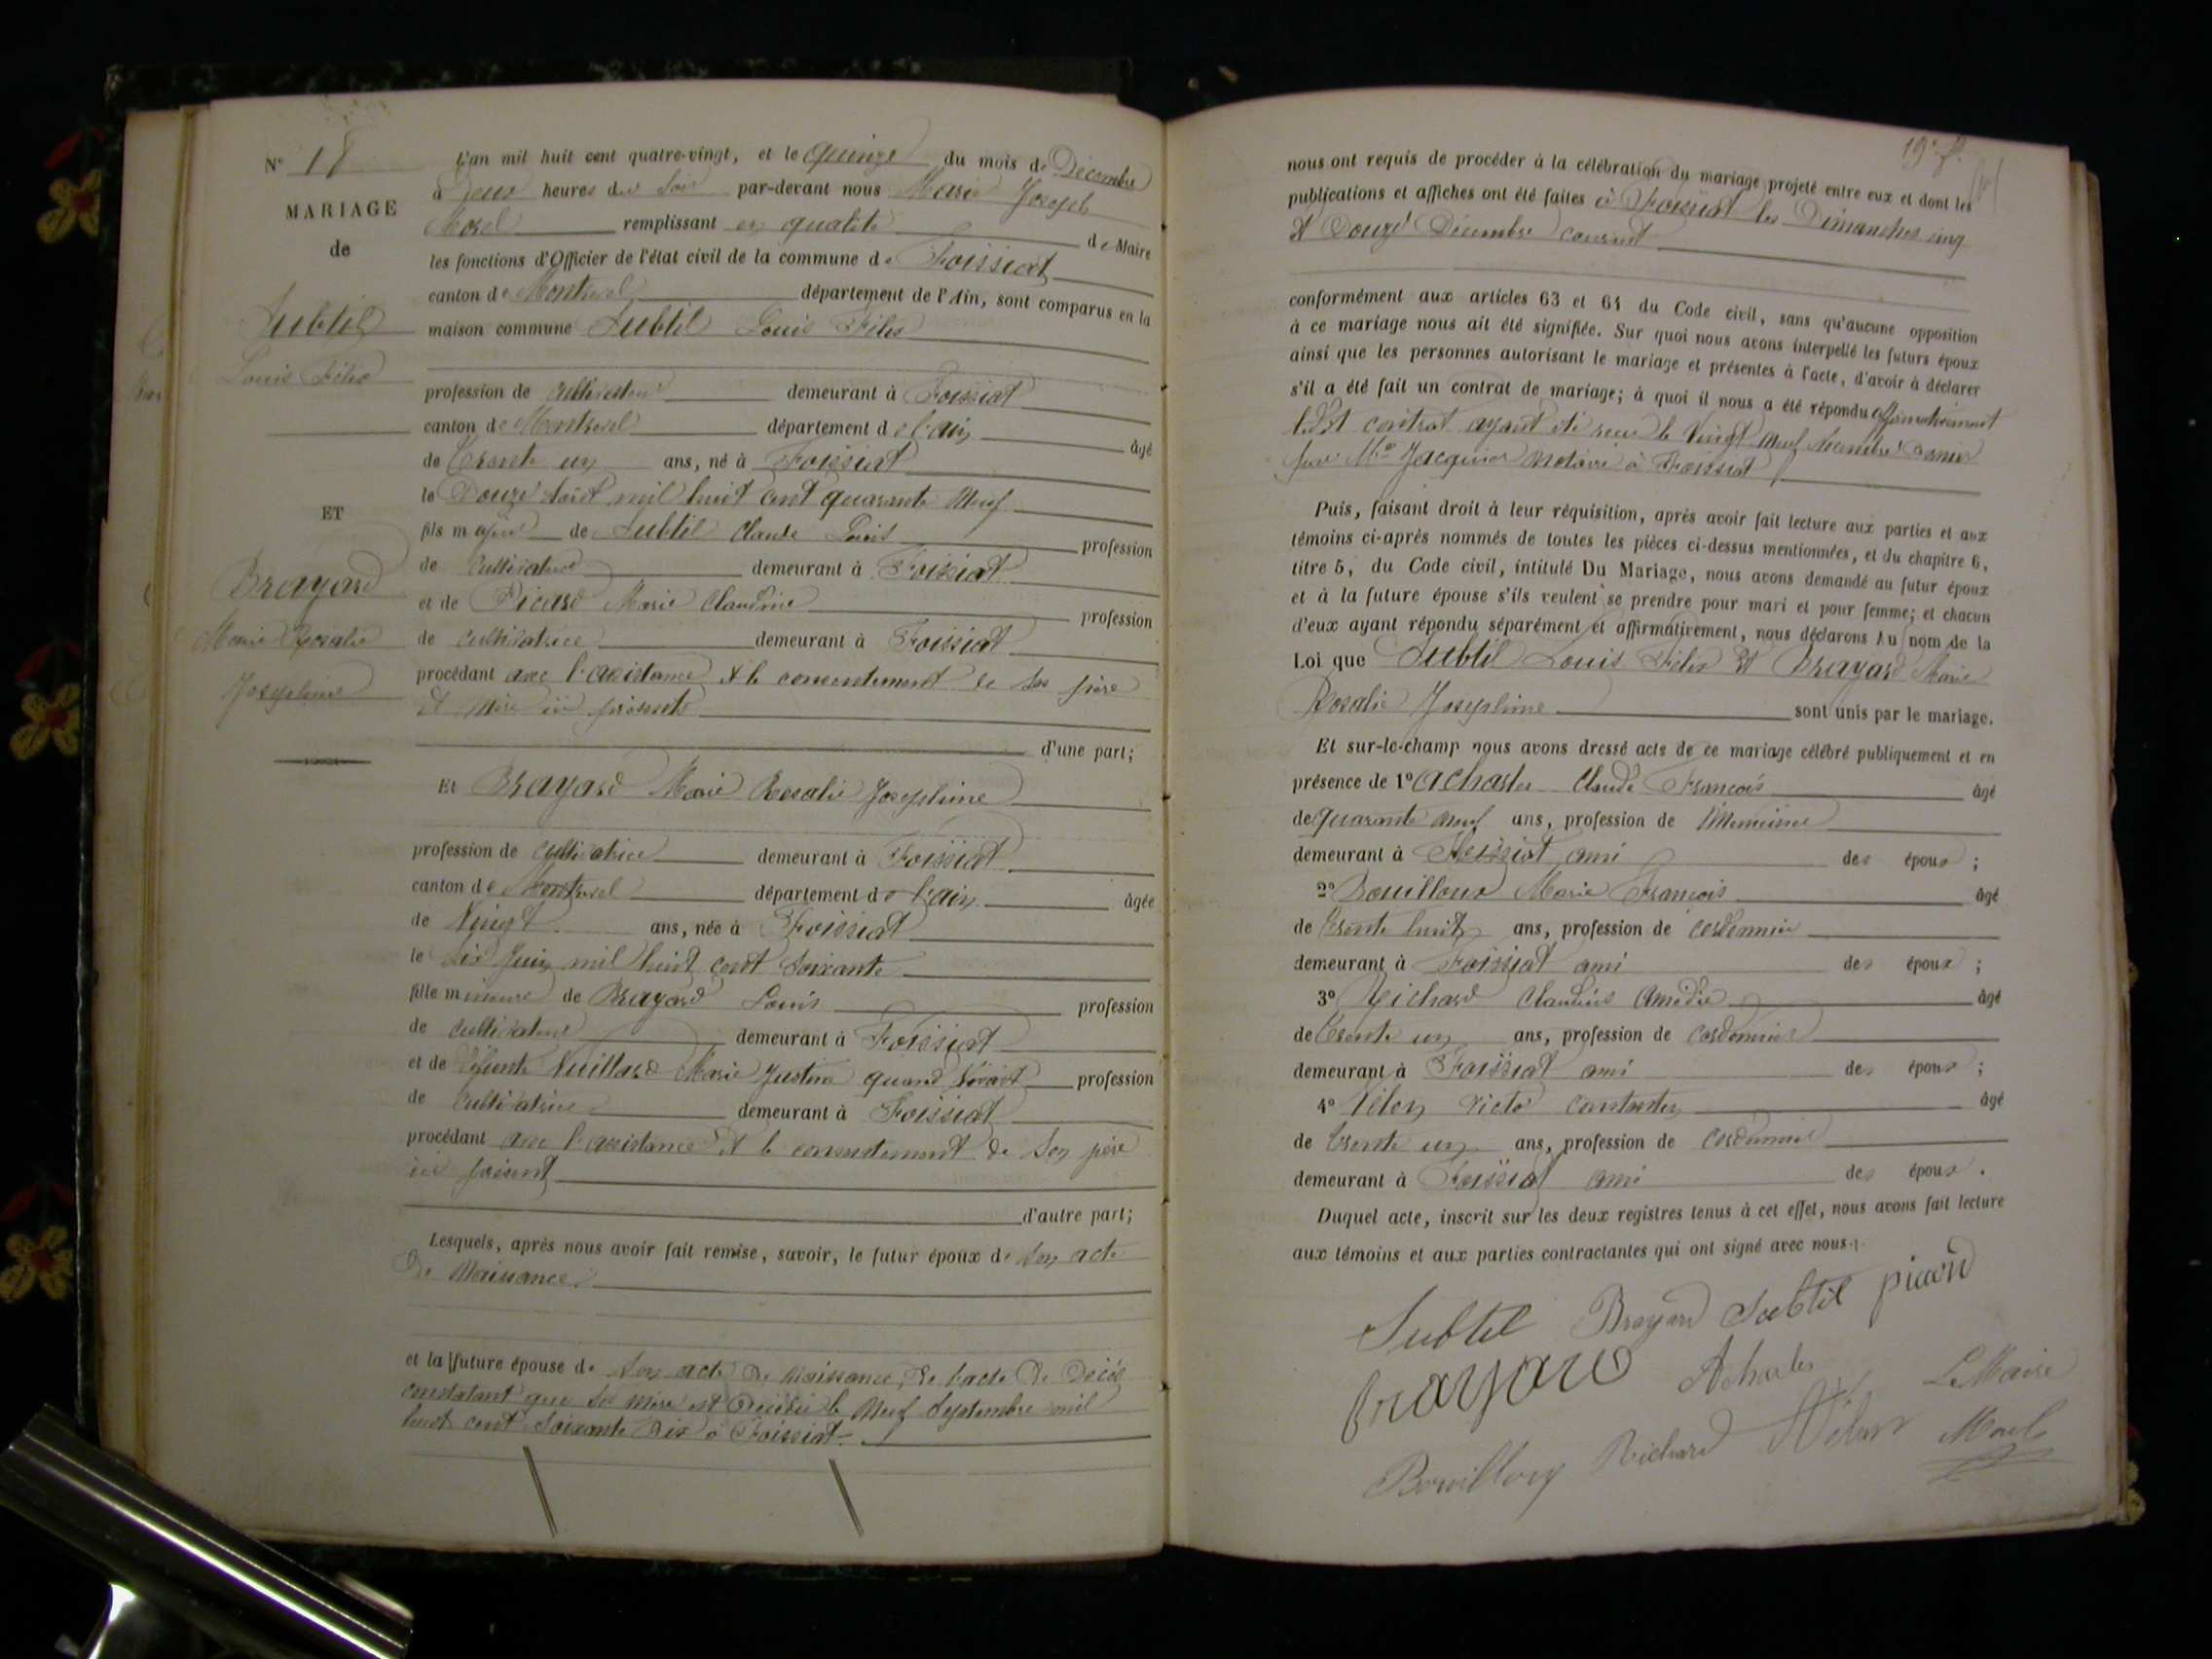 N° 18
MARIAGE
de
Subtil
Louis Félix
ET
Brayard
Marie Rosalie
Joséphine
L'an mil huit cent quatre-vingt, et le quinze du mois de Décembre
à deux heures du Soir par-devant nous Marie Joseph
Morel remplissant en qualité de Maire
les fonctions d'Officier de l'état civil de la commune de Foissiat
canton de Montrevel département de l'Ain, sont comparus en la
maison commune Subtil Louis Félix
profession de cultivateur demeurant à Foissiat
canton de Montrevel département de l'ain âgé
de Trente un ans, né à Foissiat
le Douze Août mil huit cent quarante neuf
fils majeur de Subtil Claude Louis profession
de cultivateur demeurant à Foissiat
et de Picard Marie Claudine profession
de cultivatrice demeurant à Foissiat
procédant avec l'assistance et le consentement de ses père
et mère ici présents
d'une part;
Et Brayard Marie Rosalie Joséphine
profession de cultivatrice demeurant à Foissiat
canton de Montrevel département de l'ain âgée
de Vingt ans, née à Foissiat
le six Juin mil huit cent soixante
fille mineure de Brayard Louis profession
de cultivateur demeurant à Foissiat
et de défunte Vuillard Marie Justine quand vivait profession
de cultivatrice demeurant à Foissiat
procédant avec l'assistance et le consentement de son père
ici présent
d'autre part;
Lesquels, après nous avoir fait remise, savoir, le futur époux de son acte
de Naissance
et la future épouse de son acte de Naissance, de l'acte de Décès
constatant que sa mère est décédée le neuf Septembre mil
huit cent soixante dix à Foissiat
19e f.
nous ont requis de procéder à la célébration du mariage projeté entre eux et dont les
publications et affiches ont été faites à Foissiat les Dimanches cinq
et Douze Décembre courant
conformément aux articles 63 et 64 du Code civil, sans qu'aucune opposition
à ce mariage nous ait été signifiée. Sur quoi nous avons interpellé les futurs époux
ainsi que les personnes autorisant le mariage et présentes à l'acte, d'avoir à déclarer
s'il a été fait un contrat de mariage; à quoi il nous a été répondu affirmativement
ledit contrat ayant été reçu le vingt neuf Novembre dernier
par Me Jacquier notaire à Foissiat
Puis, faisant droit à leur réquisition, après avoir fait lecture aux parties et aux
témoins ci-après nommés de toutes les pièces ci-dessus mentionnées, et du chapitre 6,
titre 5, du Code civil, intitulé Du Mariage, nous avons demandé au futur époux
et à la future épouse s'ils veulent se prendre pour mari et pour femme; et chacun
d'eux ayant répondu séparément et affirmativement, nous déclarons Au nom de la
Loi que Subtil Louis Félix et Brayard Marie
Rosalie Joséphine sont unis par le mariage.
Et sur-le-champ nous avons dressé acte de ce mariage célébré publiquement et en
présence de 1° Acharles Claude François âgé
de quarante neuf ans, profession de Menuisier
demeurant à Foissiat ami des époux ;
2° Bouilloux Marie François âgé
de Trente huit ans, profession de cordonnier
demeurant à Foissiat ami des époux ;
3° Richard Claudius Amédée âgé
de Trente un ans, profession de cordonnier
demeurant à Foissiat ami des époux ;
4° Victor âgé
de Trente un ans, profession de cordonnier
demeurant à Foissiat ami des époux .
Duquel acte, inscrit sur les deux registres tenus à cet effet, nous avons fait lecture
aux témoins et aux parties contractantes qui ont signé avec nous.
Subtil Brayard Subtil picard
brayard Acharles Le Maire
Bouilloux Richard Morel